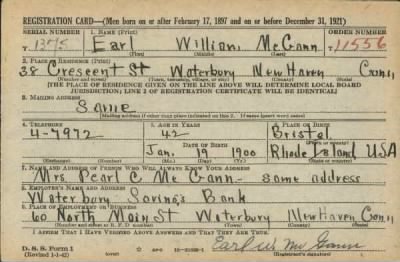 REGISTRATION CARD—(Men born on or after February 17, 1897 and on or before December 31, 1921)
SERIAL NUMBER 1. NAME (Print) ORDER NUMBER
Earl William McGann 11556
(First) (Middle) (Last)
2. PLACE OF RESIDENCE (Print)
38 Crescent St Waterbury New Haven Conn
(Number and street) (Town, township, village, or city) (County) (State)
[THE PLACE OF RESIDENCE GIVEN ON THE LINE ABOVE WILL DETERMINE LOCAL BOARD
JURISDICTION; LINE 2 OF REGISTRATION CERTIFICATE WILL BE IDENTICAL]
3. MAILING ADDRESS
Same
[Mailing address if other than place indicated on line 2. If same insert word same]
4. TELEPHONE 5. AGE IN YEARS 6. PLACE OF BIRTH
4-7972 42 Bristol
DATE OF BIRTH
Jan. 19 1900 Rhode Island USA
(Exchange) (Number) (Mo.) (Day) (Yr.) (Town or county) (State or country)
7. NAME AND ADDRESS OF PERSON WHO WILL ALWAYS KNOW YOUR ADDRESS
Mrs. Pearl C McGann - same address
8. EMPLOYER'S NAME AND ADDRESS
Waterbury Savings Bank
9. PLACE OF EMPLOYMENT OR BUSINESS
60 North Main St Waterbury New Haven Conn
(Number and street or R. F. D. number) (Town) (County) (State)
I AFFIRM THAT I HAVE VERIFIED ABOVE ANSWERS AND THAT THEY ARE TRUE.
D. S. S. Form 1
(Revised 1-1-42) (over) Earl W McGann
(Registrant's signature)